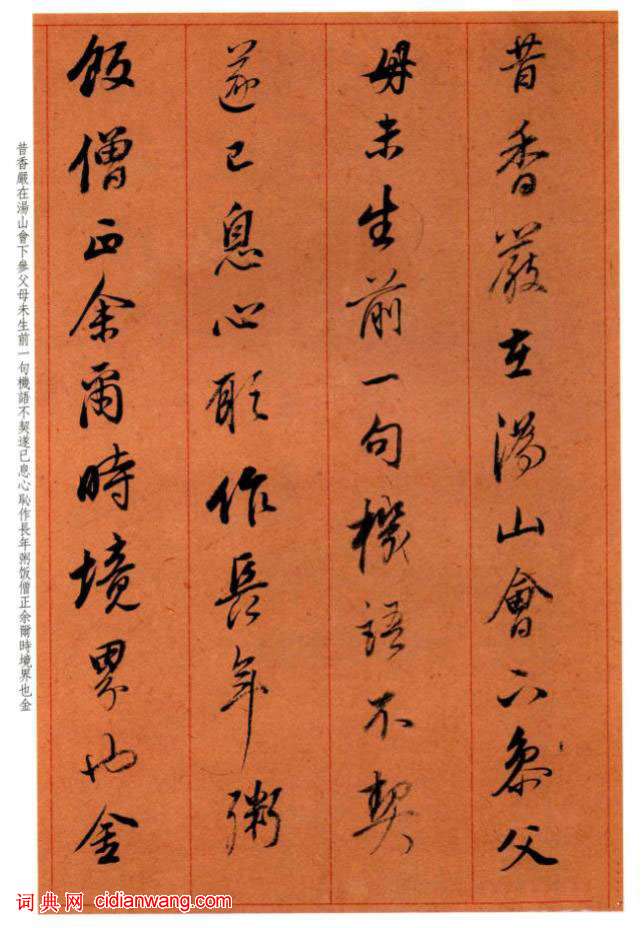 昔香嚴在湯山會下參父
母未生前一句機語不契
遂已息心耻作長年粥
飯僧正余爾時境界也金
昔香嚴在湯山會下參父母未生前一句機語不契遂已息心恥作長年粥饭僧正余爾時境界也金
词典网 cidianwang.com